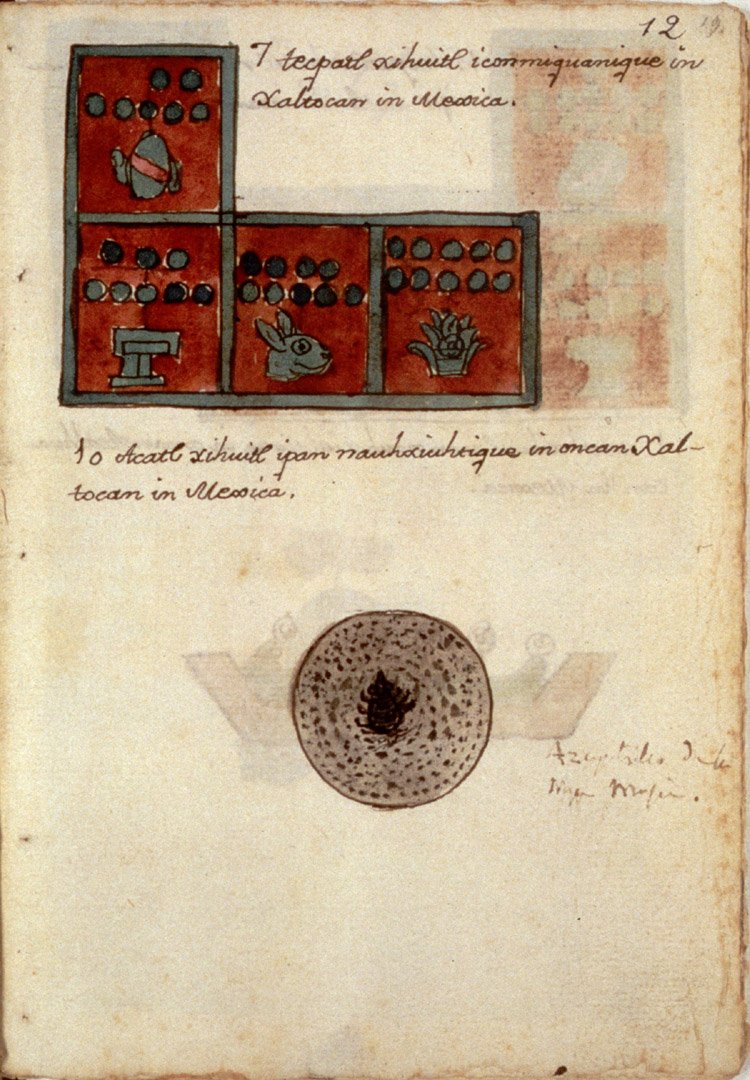 12 19.
7 tecpatl xihuitl iconmiquanique in
Xaltocan in Mexica.
10 Acatl xihuitl ipan nauhxiuhtique in oncan Xal-
tocan in Mexica.